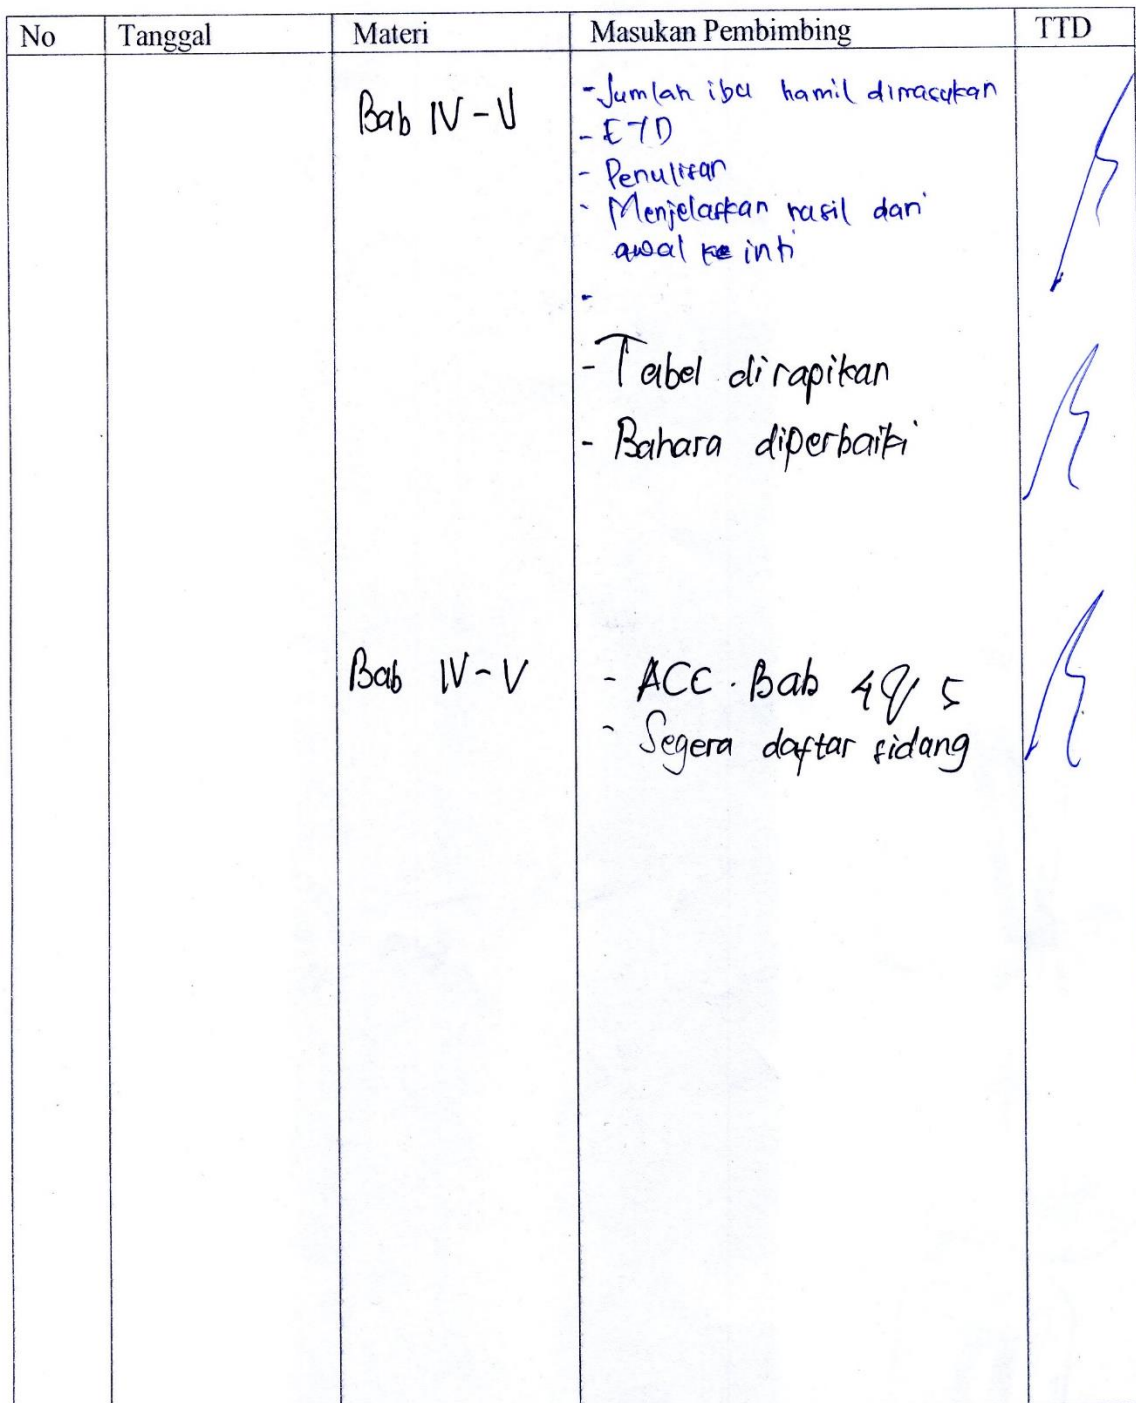 No Tanggal Materi Masukan Pembimbing TTD
Bab IV - V
- Jumlah ibu hamil dimasukan
- EYD
- Penulisan
- Menjelaskan hasil dari
awal ke inti
-
- Tabel dirapikan
- Bahasa diperbaiki
Bab IV - V
- ACC. Bab 4 & 5
- Segera daftar sidang